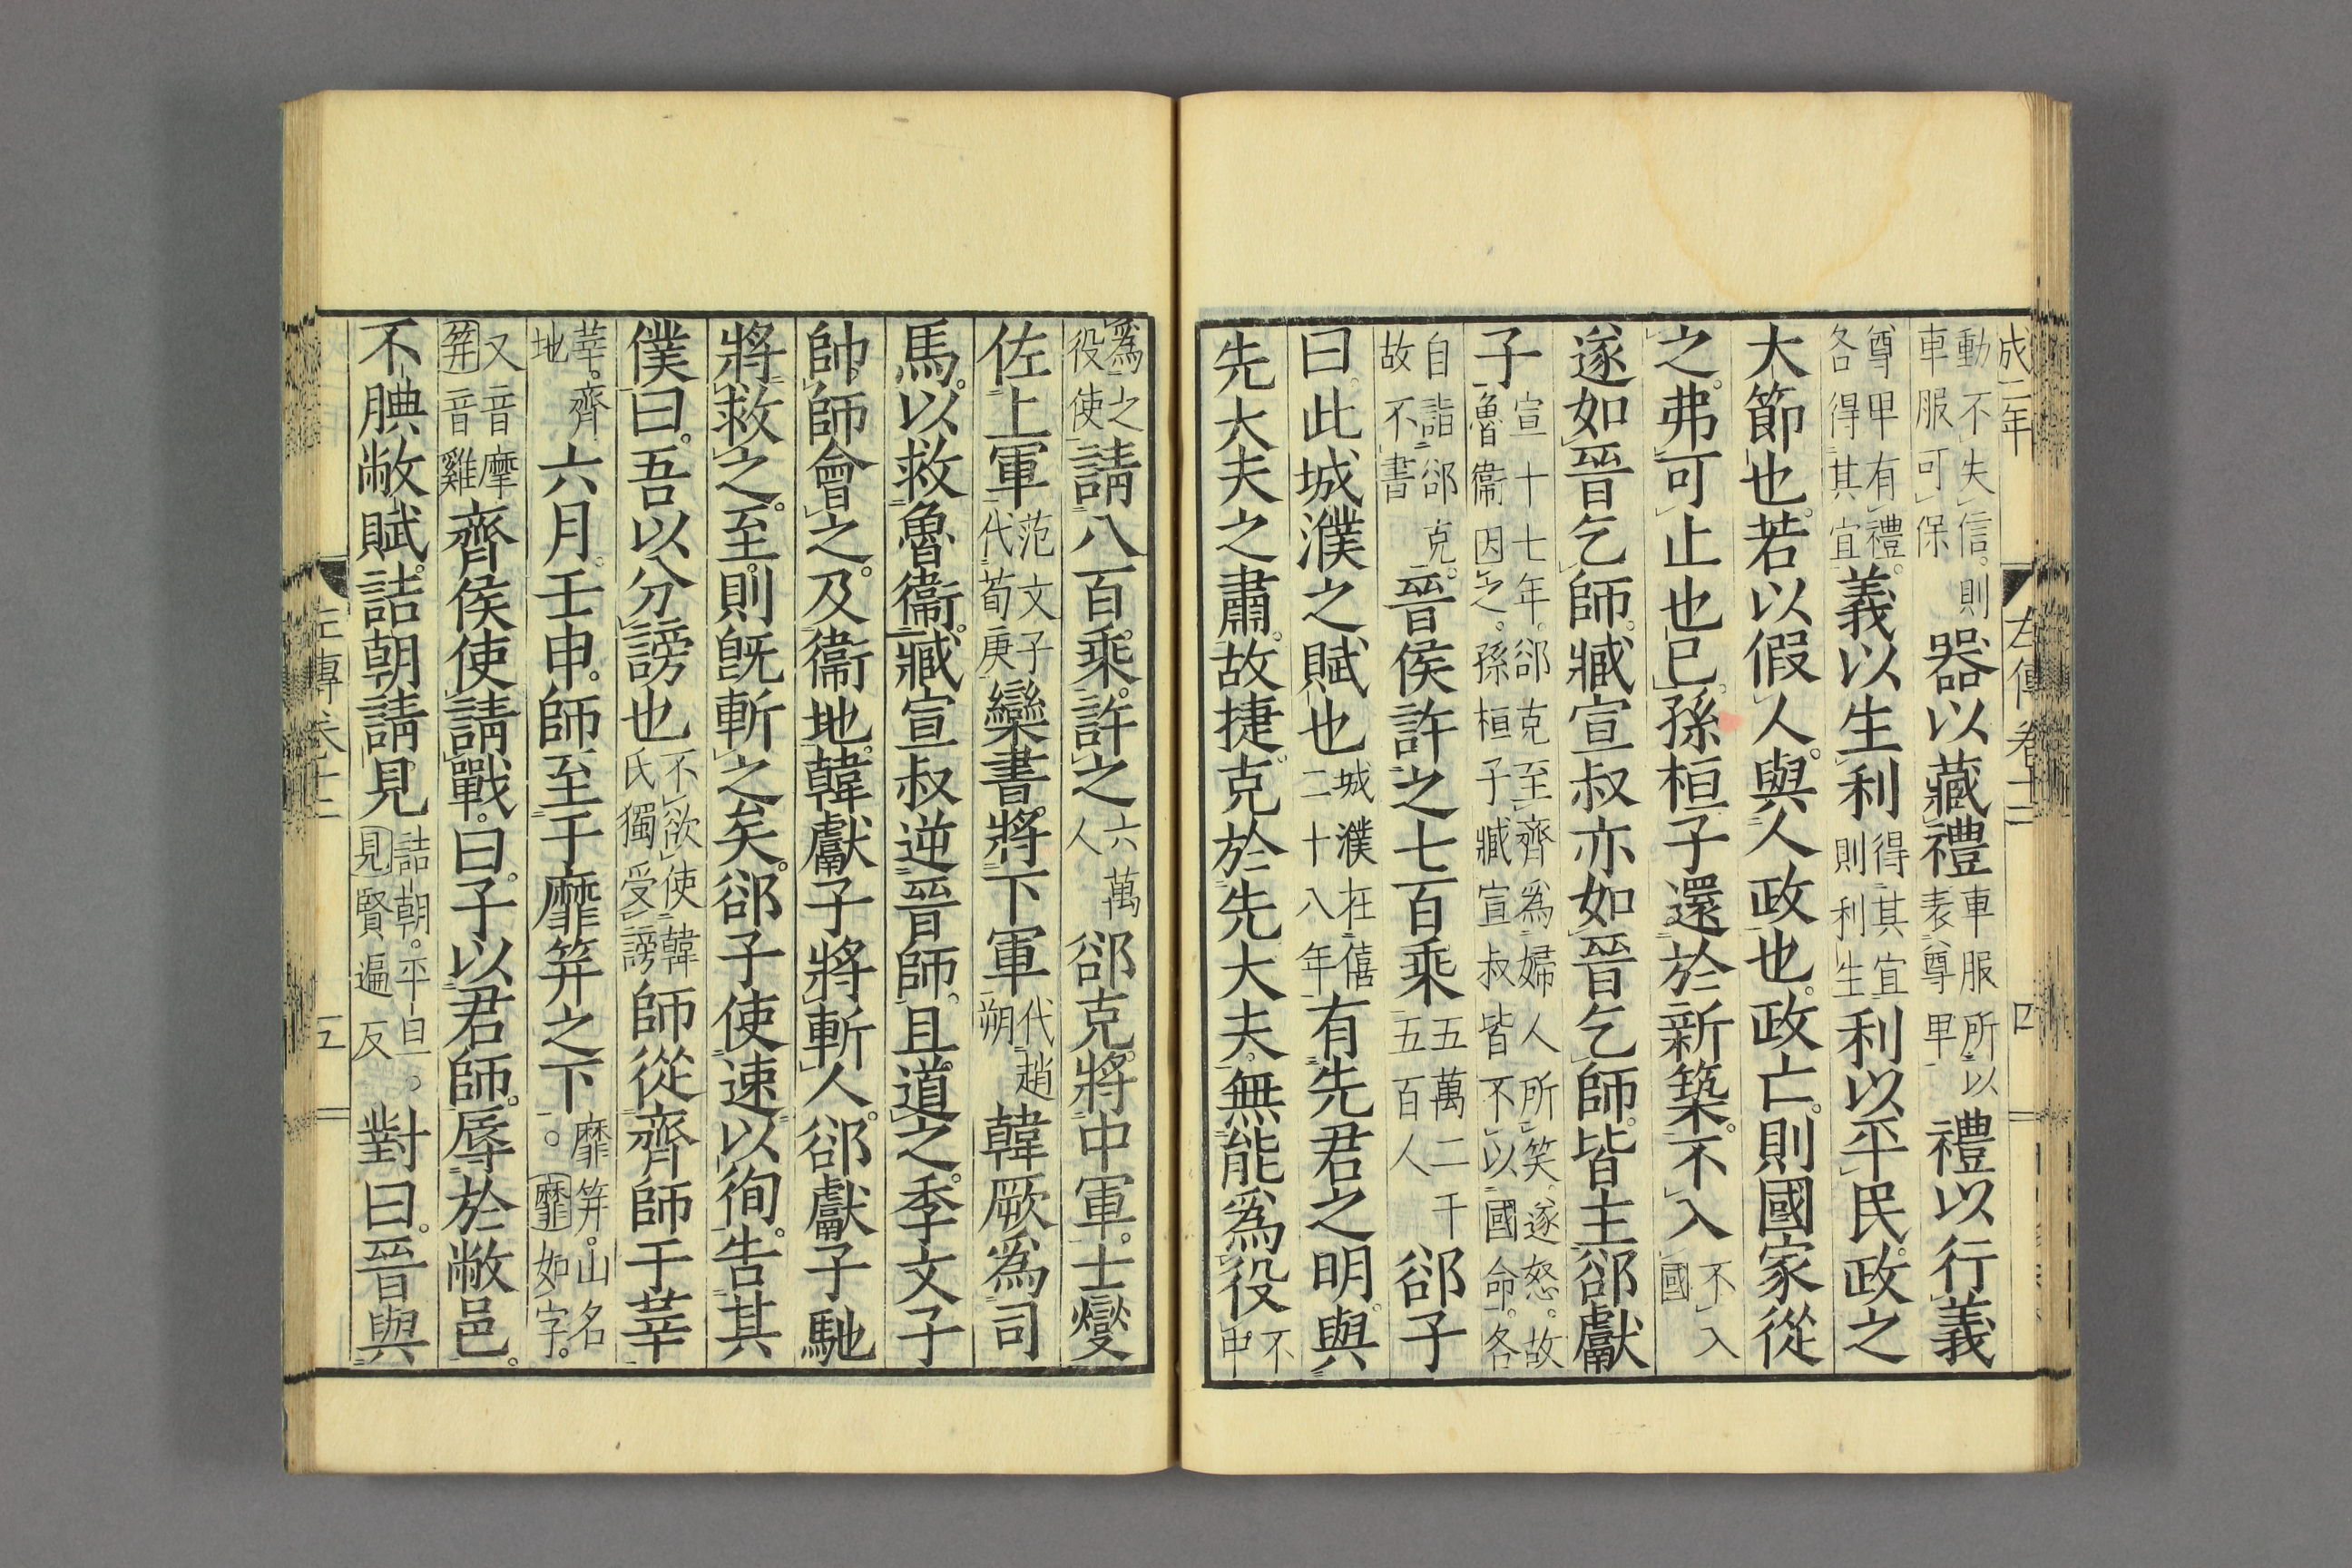 成二年
左傳卷十二 四
動不失信則車服可保器以藏禮車服所以表尊卑禮以行義
尊卑有禮各得其宜義以生利得其宜則利生利以平民政之
大節也若以假人與人政也政亡則國家從
之弗可止也已孫桓子還於新築不入不入國
遂如晉乞師臧宣叔亦如晉乞師皆主郤獻
子宣十七年郤克至齊爲婦人所笑遂怒故魯衞因之孫桓子臧宣叔皆不以國命各
自詣郤克故不書晉侯許之七百乘五萬二千五百人郤子
曰此城濮之賦也城濮在僖二十八年有先君之明與
先大夫之肅故捷克於先大夫無能爲役不中
爲之役使請八百乘許之六萬人郤克將中軍士燮
佐上軍范文子代荀庚欒書將下軍代趙朔韓厥爲司
馬以救魯衞臧宣叔逆晉師且道之季文子
帥師會之及衞地韓獻子將斬人郤獻子馳
將救之至則旣斬之矣郤子使速以徇告其
僕曰吾以分謗也不欲使韓氏獨受謗師從齊師于莘
莘齊地六月壬申師至于靡笄之下靡笄山名靡如字
又音摩笄音雞齊侯使請戰曰子以君師辱於敝邑
不腆敝賦詰朝請見詰朝平旦見賢遍反對曰晉與
左傳卷十二 五